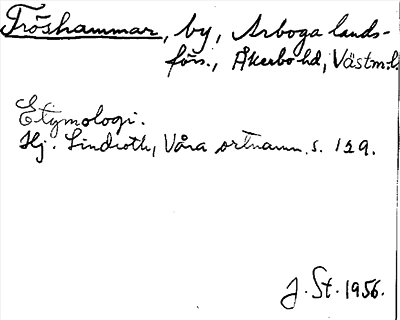 Fröshammar, by, Arboga lands-
förs., Åkerbo hd, Västm.l.
Etymologi.
Hj. Lindroth, Våra ortnamn. s. 129.
J. St. 1956.